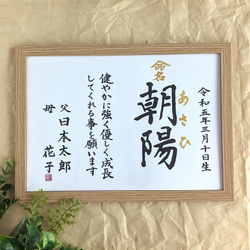 令和五年三月十日生
命名
朝陽
あさひ
健やかに強く優しく成長
してくれる事を願います
父 日本太郎
母 花子